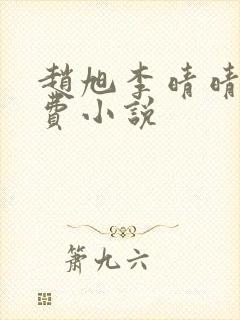 趙旭李晴晴
費小說
簫九六